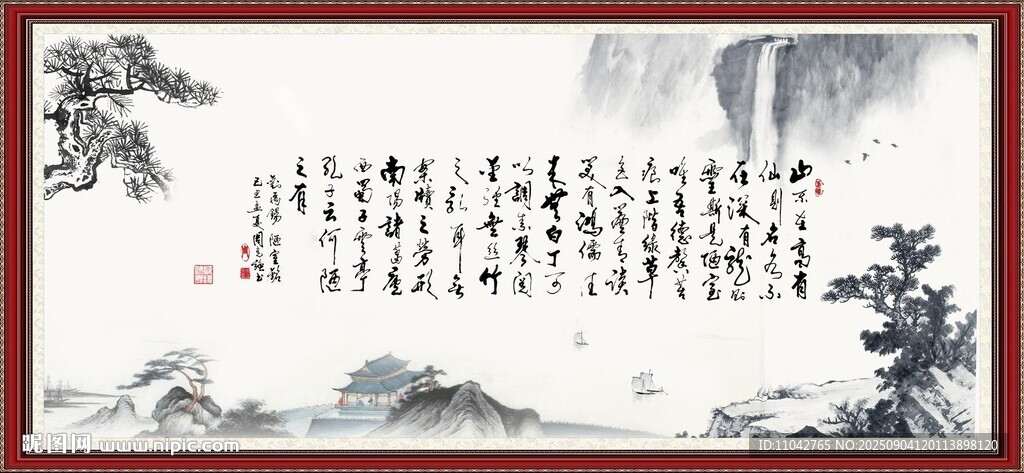 山不在高有
仙則名水不
在深有龍則
靈斯是陋室
唯吾德馨苔
痕上階綠草
色入簾青談
笑有鴻儒往
來無白丁可
以調素琴閱
金經無絲竹
之亂耳無
案牘之勞形
南陽諸葛廬
西蜀子雲亭
孔子云何陋
之有
劉禹錫 陋室銘
昵图网 www.nipic.com
ID:11042765 NO:20250904120113898120